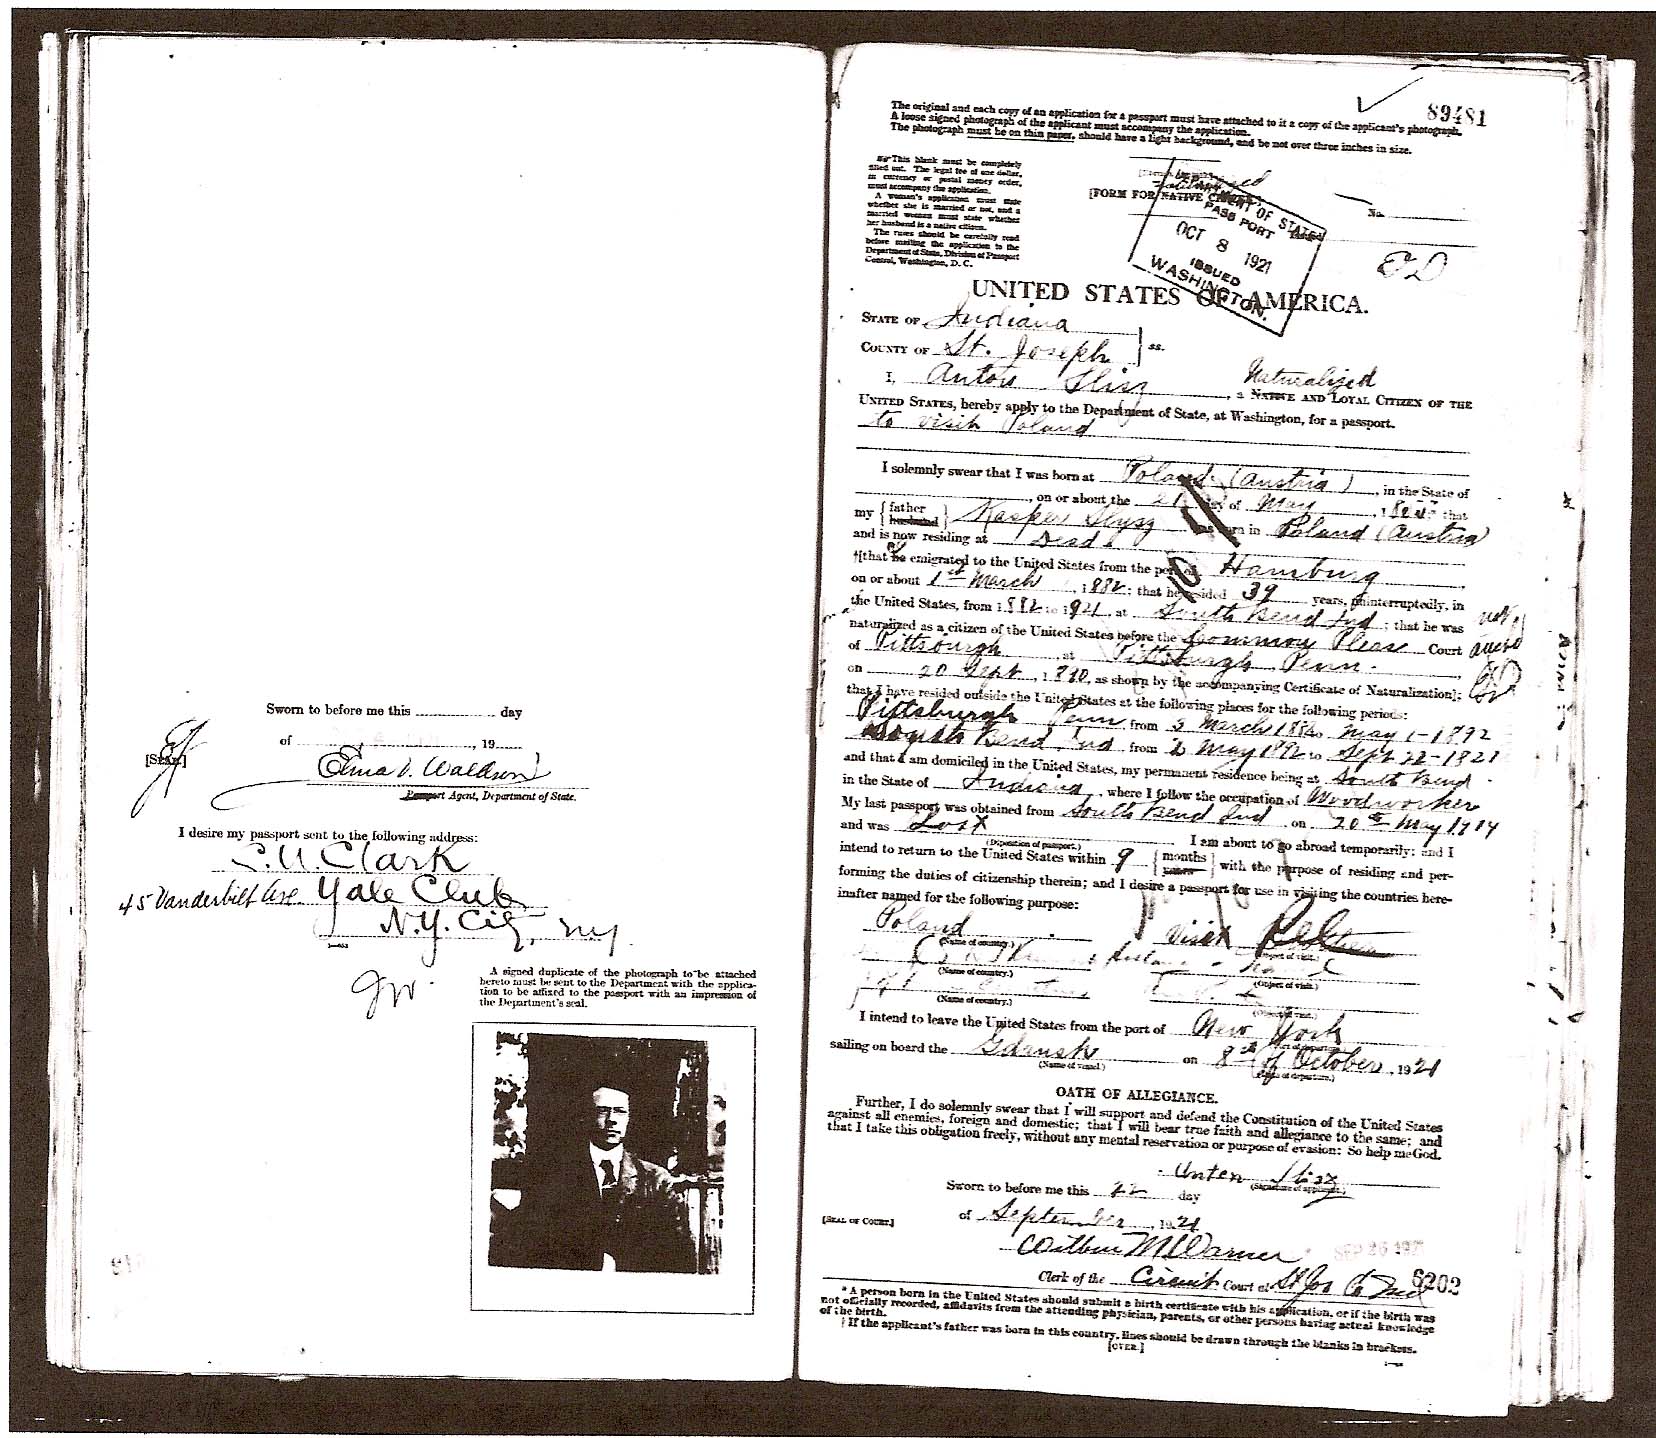 Sworn to before me this ____ day
of ____, 19__
[SEAL]
Elma D. Waldson
Passport Agent, Department of State.
I desire my passport sent to the following address:
C.U. Clark
45 Vanderbilt Ave. Yale Club
N.Y. City, NY
A signed duplicate of the photograph to be attached
hereto must be sent to the Department with the applica-
tion to be affixed to the passport with an impression of
the Department's seal.
89481
The original and each copy of an application for a passport must have attached to it a copy of the applicant's photograph.
A loose signed photograph of the applicant must accompany the application.
The photograph must be on thin paper, should have a light background, and be not over three inches in size.
This blank must be completely
filled out. The legal fee of one dollar,
in currency or postal money order,
must accompany the application.
A woman's application must state
whether she is married or not, and a
married woman must state whether
her husband is a native citizen.
The rules should be carefully read
before mailing the application to the
Department of State, Division of Passport
Control, Washington, D. C.
[FORM FOR NATIVE CITIZEN]
No.
DEPARTMENT OF STATE
PASSPORT
OCT 8 1921
ISSUED
WASHINGTON.
UNITED STATES OF AMERICA.
STATE OF Indiana
COUNTY OF St. Joseph } ss.
Naturalized
I, Anton Slisz, a NATIVE AND LOYAL CITIZEN OF THE
UNITED STATES, hereby apply to the Department of State, at Washington, for a passport.
to visit Poland
I solemnly swear that I was born at Poland (Austria), in the State of
____, on or about the 21 day of May, that
my { father husband } Kasper Slysz was born in Poland (Austria)
and is now residing at Dead.
†[that he emigrated to the United States from the port of Hamburg
on or about 1st March, 1882; that he resided 39 years, uninterruptedly, in
the United States, from 1882 to 1921, at South Bend Ind; that he was
naturalized as a citizen of the United States before the Common Pleas Court
of Pittsburgh at Pittsburgh Penn.
on 20 Sept, 1890, as shown by the accompanying Certificate of Naturalization];
that I have resided outside the United States at the following places for the following periods:
Pittsburgh Penn, from 3 March 1884 to May 1-1892
South Bend Ind. from 2 May 1892 to Sept 22-1921
and that I am domiciled in the United States, my permanent residence being at South Bend
in the State of Indiana, where I follow the occupation of Woodworker
My last passport was obtained from South Bend Ind on 20th May 1914
and was Lost I am about to go abroad temporarily; and I
(Disposition of passport.)
intend to return to the United States within 9 { months years } with the purpose of residing and per-
forming the duties of citizenship therein; and I desire a passport for use in visiting the countries here-
inafter named for the following purpose:
Poland Visit
(Name of country.) (Object of visit.)
(Name of country.) (Object of visit.)
(Name of country.) (Object of visit.)
I intend to leave the United States from the port of New York
sailing on board the Gdansk on 8th of October, 1921
(Name of vessel.) (Date of departure.)
OATH OF ALLEGIANCE.
Further, I do solemnly swear that I will support and defend the Constitution of the United States
against all enemies, foreign and domestic; that I will bear true faith and allegiance to the same; and
that I take this obligation freely, without any mental reservation or purpose of evasion: So help me God.
Anton Slisz
(Signature of applicant.)
Sworn to before me this 22 day
of September, 1921
[SEAL OF COURT.]
Wilbur M Warner
Clerk of the Circuit Court at St Jos Co Ind
6202
* A person born in the United States should submit a birth certificate with his application, or if the birth was
not officially recorded, affidavits from the attending physician, parents, or other persons having actual knowledge
of the birth.
† If the applicant's father was born in this country, lines should be drawn through the blanks in brackets.
[OVER.]